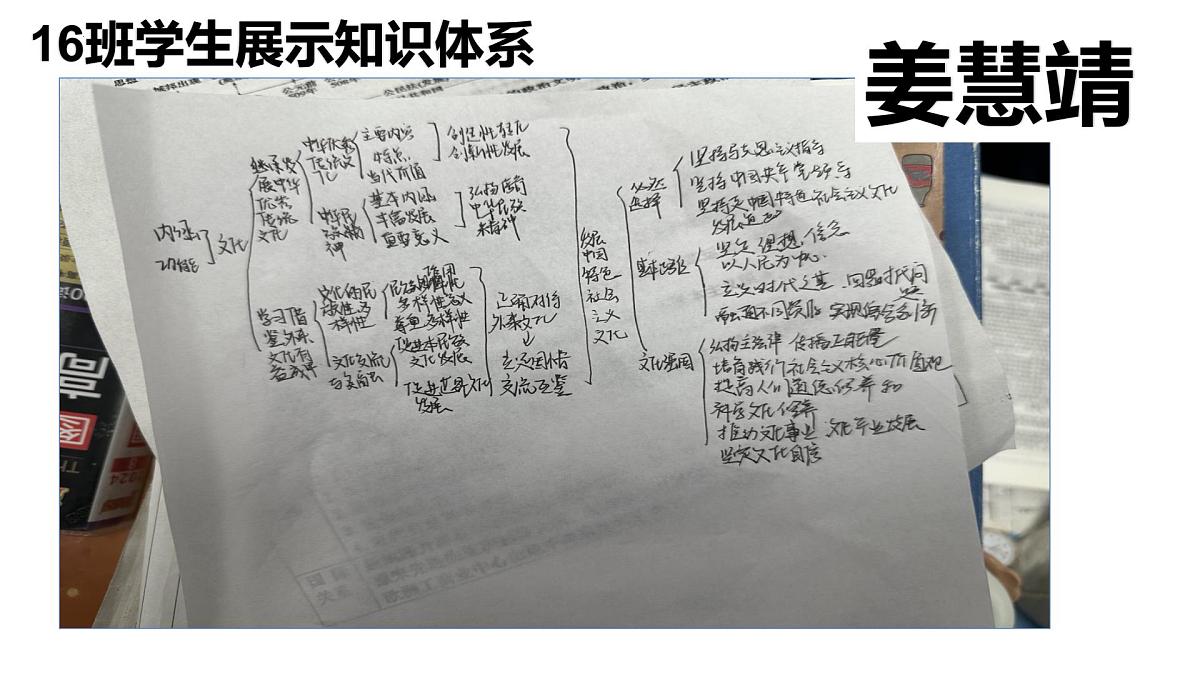 16班学生展示知识体系
姜慧靖
内涵
功能
文化
继承发
展中华
优秀
传统
文化
中华优秀
传统文
化
主要内容
特点
当代价值
创造性转化
创新性发展
中华民
族精
神
基本内涵
丰富发展
重要意义
弘扬培育
中华民族
精神
学习借
鉴外来
文化有
益成果
文化的民
族性多
样性
多样性意义
尊重多样性
文化交流
与交融
促进本民族
文化发展
促进世界文化
发展
正确对待
外来文化
↓
交流互鉴
发展
中国
特色
社会
主义
文化
必然
选择
坚持马克思主义指导
坚持中国共产党领导
坚持走中国特色社会主义文化
发展道路
基本路径
坚定理想,信念
以人民为中心
立足时代之基 回答时代问
题
融通不同资源 实现综合创新
文化强国
弘扬主旋律 传播正能量
培育践行社会主义核心价值观
提高人们道德修养和
科学文化修养
推动文化事业 文化产业发展
坚定文化自信